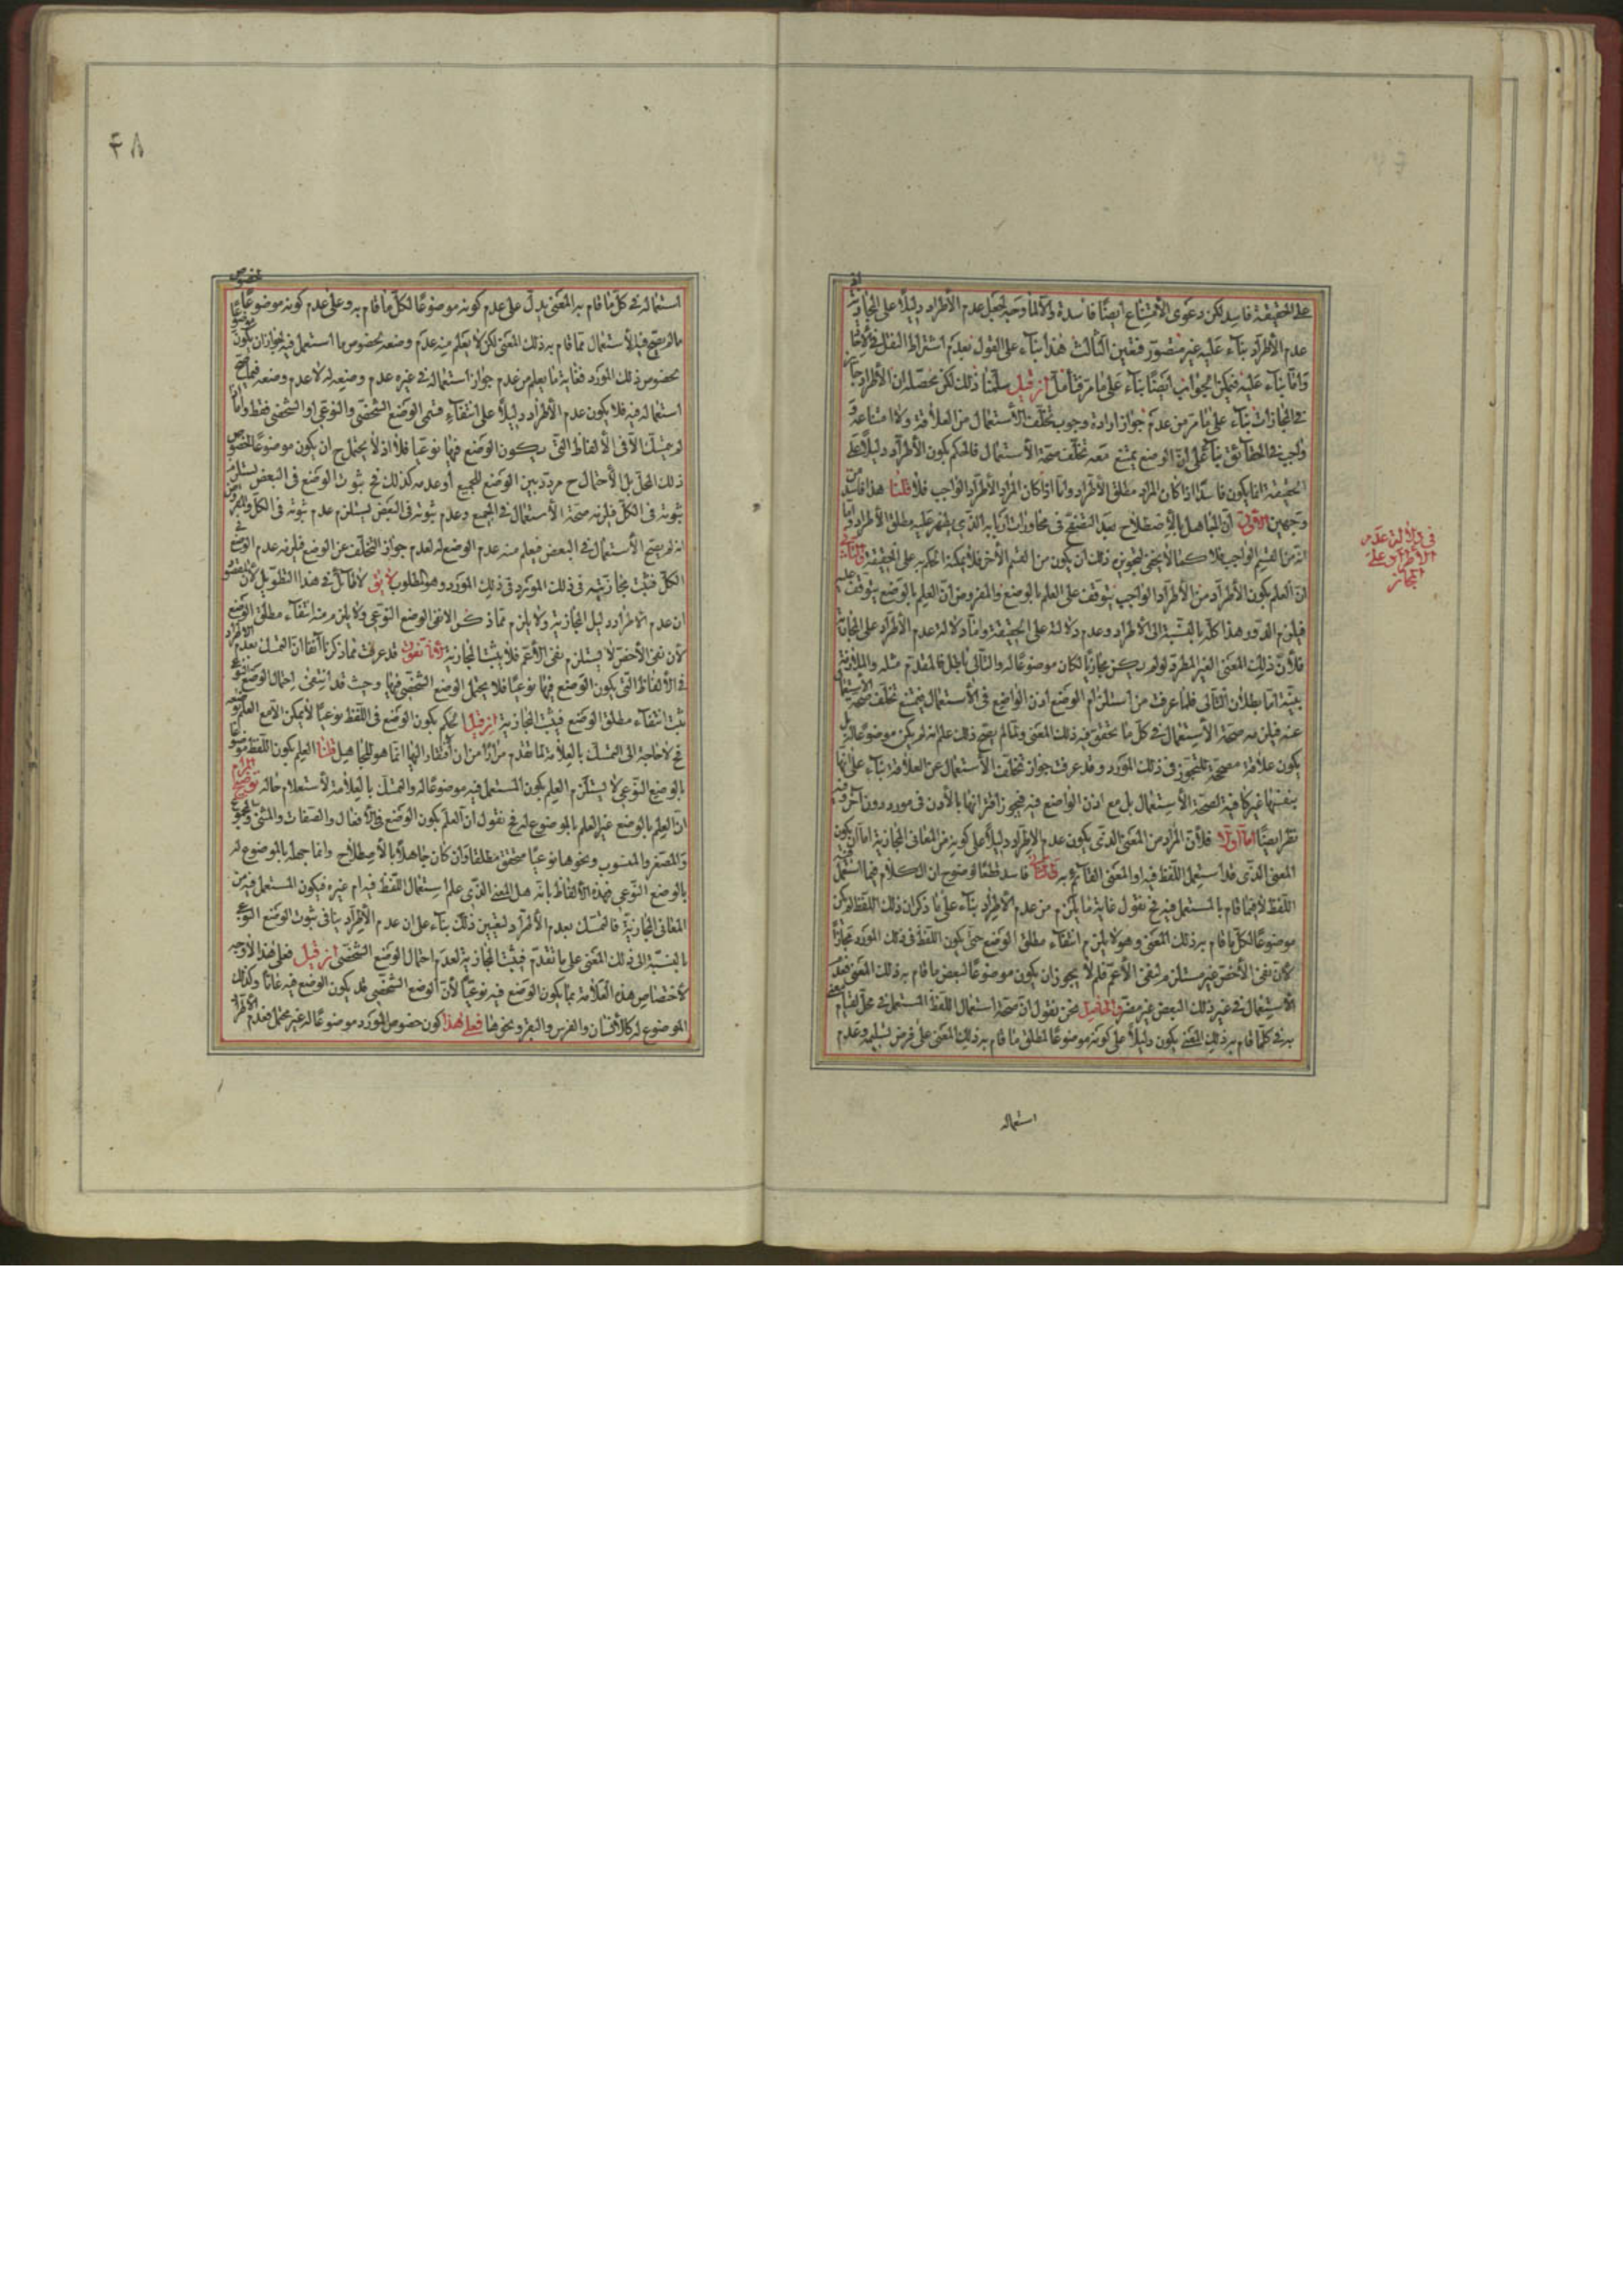 على الحقيقة فاسد لكن دعوى الامتناع ايضًا فاسدة والا لما وجه لجعل عدم الاطراد دليلًا على المجازية
عدم الاطراد بناء عليه غير متصور فتعين الثالث هذا بناء على القول بعدم اشتراط النقل في
واما بناء عليه فيمكن الجواب ايضًا بناء على ما مر فتأمل ان قيل سلمنا ذلك لكن محصله ان الاطراد جايز
في المجازات بناء على ما مر من عدم جواز ارادة وجوب تخلف الاستعمال من العلاقة ولا امتناعه و
واجب في الحقائق بناء على ان الوضع يمتنع معه تخلف صحة الاستعمال فالحكم بكون الاطراد دليلًا على
الحقيقة انما يكون فاسدًا اذا كان المراد مطلق الاطراد واما اذا كان المراد الاطراد الواجب فلا قلنا هذا فاسد من
وجهين الاول ان الجاهل بالاصطلاح بعد التفحص في محاورات اربابه الذي يظهر عليه مطلق الاطراد واما
انه من القسم الواجب فلا كما لا يخفى لتجويز ذلك ان يكون من القسم الآخر فلا يمكنه الحكم به على الحقيقة والثاني
ان العلم بكون الاطراد من الاطراد الواجب يتوقف على العلم بالوضع والمفروض ان العلم بالوضع يتوقف عليه
فيلزم الدور هذا كله بالنسبة الى الاطراد وعدم دلالته على الحقيقة واما دلالة عدم الاطراد على المجازية
فلأن ذلك المعنى الغير المطرد لو لم يكن مجازيًا لكان موضوعًا له والتالي باطل فالمقدم مثله والملازمة
بينة اما بطلان التالي فلما عرفت من استلزام الوضع اذن الواضع في الاستعمال فيمتنع تخلف صحة الاستعمال
عنه فيلزمه صحة الاستعمال في كل ما يتحقق فيه ذلك المعنى ولما لم يصح ذلك علم انه لم يكن موضوعًا له بل
يكون علاقة مصححة للتجوز في ذلك المورد وقد عرفت جواز تخلف الاستعمال عن العلاقة بناء على انها
بنفسها غير كافية لصحة الاستعمال بل مع اذن الواضع فيه فيجوز اقترانها بالاذن في مورد دون آخر وفيه
نظر ايضًا اما اولا فلأن المراد من المعنى الذي يكون عدم الاطراد دليلًا على كونه من المعاني المجازية اما ان يكون
المعنى الذي قد استعمل اللفظ فيه او المعنى القائم به فاسد قطعًا لوضوح ان الكلام فيما استعمل فيه
اللفظ لا فيما قام بالمستعمل فيه فح نقول غاية ما يلزم من عدم الاطراد بناء على ما ذكر ان ذلك اللفظ لم يكن
موضوعًا لكل ما قام به ذلك المعنى وهو لا يلزم انتفاء مطلق الوضع حتى يكون اللفظ في ذلك المورد مجازًا
لأن نفي الأخص غير مستلزم لنفي الأعم فلم لا يجوز ان يكون موضوعًا لبعض ما قام به ذلك المعنى فعدم
الاستعمال في غير ذلك البعض غير مضر والحاصل نحن نقول ان صحة استعمال اللفظ المستعمل في محل لقيام معنى
به في كلما قام به ذلك المعنى يكون دليلًا على كونه موضوعًا لمطلق ما قام به ذلك المعنى على فرض تسليمه وعدم
استعماله
في دلالة عدم
الاطراد على
المجاز
٤٨
استعماله في كل ما قام به المعنى يدل على عدم كونه موضوعًا لكل ما قام به وعلى عدم كونه موضوعًا لخصوص
ما لم يصح فيه الاستعمال مما قام به ذلك المعنى لكن لا يعلم منه عدم وضعه لخصوص ما استعمل فيه لجواز ان يكون موضوعًا
لخصوص ذلك المورد فغاية ما يعلم من عدم جواز استعماله في غيره عدم وضعه له لا عدم وضعه فيما صح
استعماله فيه فلا يكون عدم الاطراد دليلًا على انتفاء قسمي الوضع الشخصي والنوعي او الشخصي فقط واما
لم جئتنا الا في الالفاظ التي يكون الوضع فيها نوعيا فلا اذ لا يحتمل ح ان يكون موضوعًا لخصوص
ذلك المحل بل الاحتمال ح مردد بين الوضع للجميع او عدمه كذلك فح ثبوت الوضع في البعض يستلزم
ثبوته في الكل فيلزمه صحة الاستعمال في الجميع وعدم ثبوته في البعض يستلزم عدم ثبوته في الكل والمفروض
انه لم يصح الاستعمال في البعض فيعلم منه عدم الوضع له لعدم جواز التخلف عن الوضع فيلزمه عدم الوضع في
الكل فثبت مجازيته في ذلك المورد وهو المطلوب لا يق لا طائل في هذا التطويل لأن المقصود
ان عدم الاطراد دليل المجازية ولا يلزم مما ذكر الا نفي الوضع النوعي ولا يلزم منه انتفاء مطلق الوضع
لأن نفي الأخص لا يستلزم نفي الأعم فلا يثبت المجازية لأنا نقول قد عرفت مما ذكرنا آنفا ان التمسك بعدم الاطراد
في الألفاظ التي يكون الوضع فيها نوعيًا فلا يحتمل الوضع الشخصي فيها وحيث قد انتفى احتمال الوضع النوعي
ثبت انتفاء مطلق الوضع فيثبت المجازية ان قيل الحكم بكون الوضع في اللفظ نوعيًا لا يمكن الا مع العلم بوضعه
فح لا حاجة الى التمسك بالعلامة لما تقدم مرارًا من ان افتقار اليها انما هو للجاهل قلنا العلم بكون اللفظ موضوعًا
بالوضع النوعي لا يستلزم العلم بكون المستعمل فيه موضوعًا له والتمسك بالعلامة لاستعلام حاله توضيح المرام
ان العلم بالوضع غير العلم بالموضوع له فح نقول ان العلم بكون الوضع في الأفعال والصفات والمثنى والمجموع
والمصغر والمنسوب ونحوها نوعيًا متحقق مطلقا وان كان جاهلًا بالاصطلاح وانما جهله بالموضوع له
بالوضع النوعي فهذه الألفاظ بانه هل المعنى الذي علم استعمال اللفظ فيه ام غيره فيكون المستعمل فيه من
المعاني المجازية فالتمسك بعدم الاطراد لتعيين ذلك بناء على ان عدم الاطراد ينافي ثبوت الوضع النوعي
بالنسبة الى ذلك المعنى على ما تقدم فيثبت المجازية لعدم احتمال الوضع الشخصي ان قيل فعلى هذا لا وجه
لاختصاص هذه العلامة بما يكون الوضع فيه نوعيًا لأن الوضع الشخصي قد يكون الوضع فيه عامًا وكذلك
الموضوع له كالانسان والفرس والبقر ونحوها فعلى هذا كون خصوص المورد موضوعًا له غير محتمل فعدم الاطراد